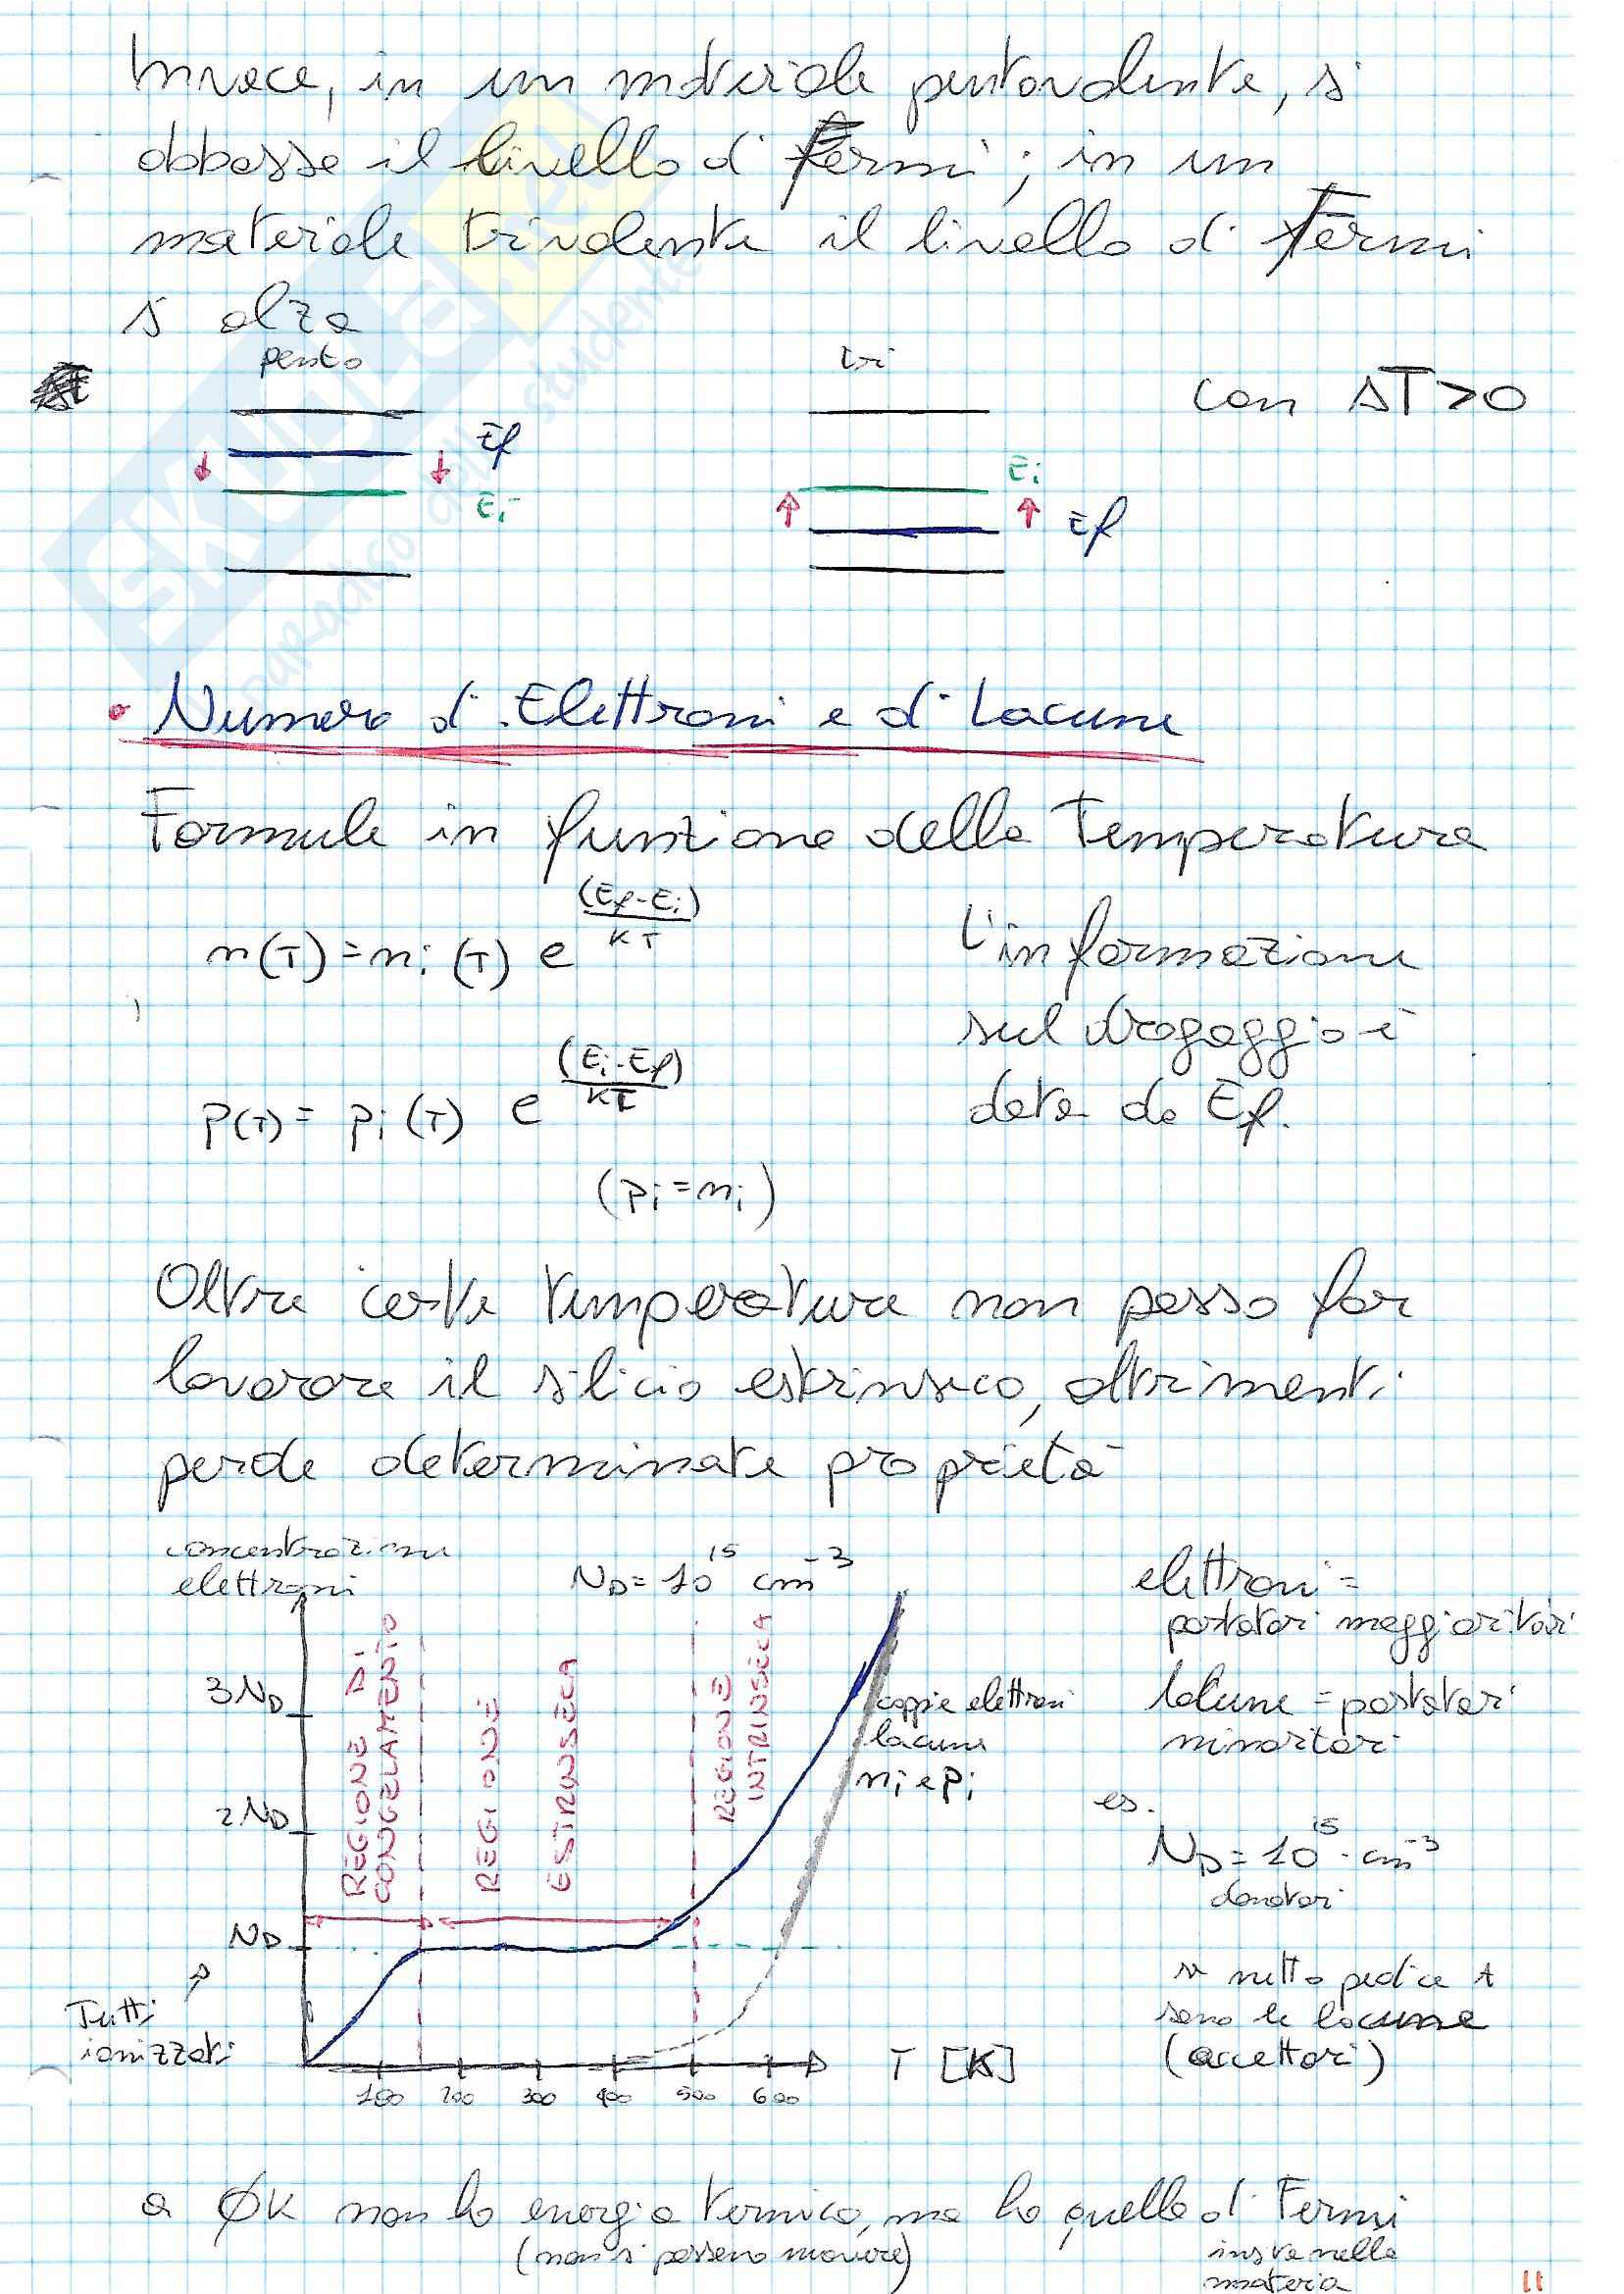 Invece, in un materiale pentavalente, si
abbassa il livello di Fermi; in un
materiale trivalente il livello di Fermi
si alza
penta
tri
con ΔT>0
Ef
Ei
Ei
Ef
SKUOLA.net
paradiso dello studente
• Numero di Elettroni e di Lacune
Formule in funzione della Temperatura
n(T) = ni (T) e^((Ef-Ei)/KT)
L'informazione
sul drogaggio è
data da Ef.
p(T) = pi (T) e^((Ei-Ef)/KT)
(pi = ni)
Oltre certe temperature non posso far
lavorare il silicio estrinseco, altrimenti
perde determinate proprietà
concentrazione
elettroni
ND = 10^15 cm^-3
3ND
2ND
ND
Tutti
ionizzati
REGIONE DI
CONGELAMENTO
REGIONE
ESTRINSECA
REGIONE
INTRINSECA
coppie elettroni
lacune
ni e pi
T [K]
100 200 300 400 500 600
elettroni =
portatori maggioritari
lacune = portatori
minoritari
es.
ND = 10^15 · cm^-3
donatori
se metto pedice A
sono le lacune
(accettori)
a ØK non ho energia termica, ma ho quella di Fermi
(non si possono muovere)
insita nella
materia
11